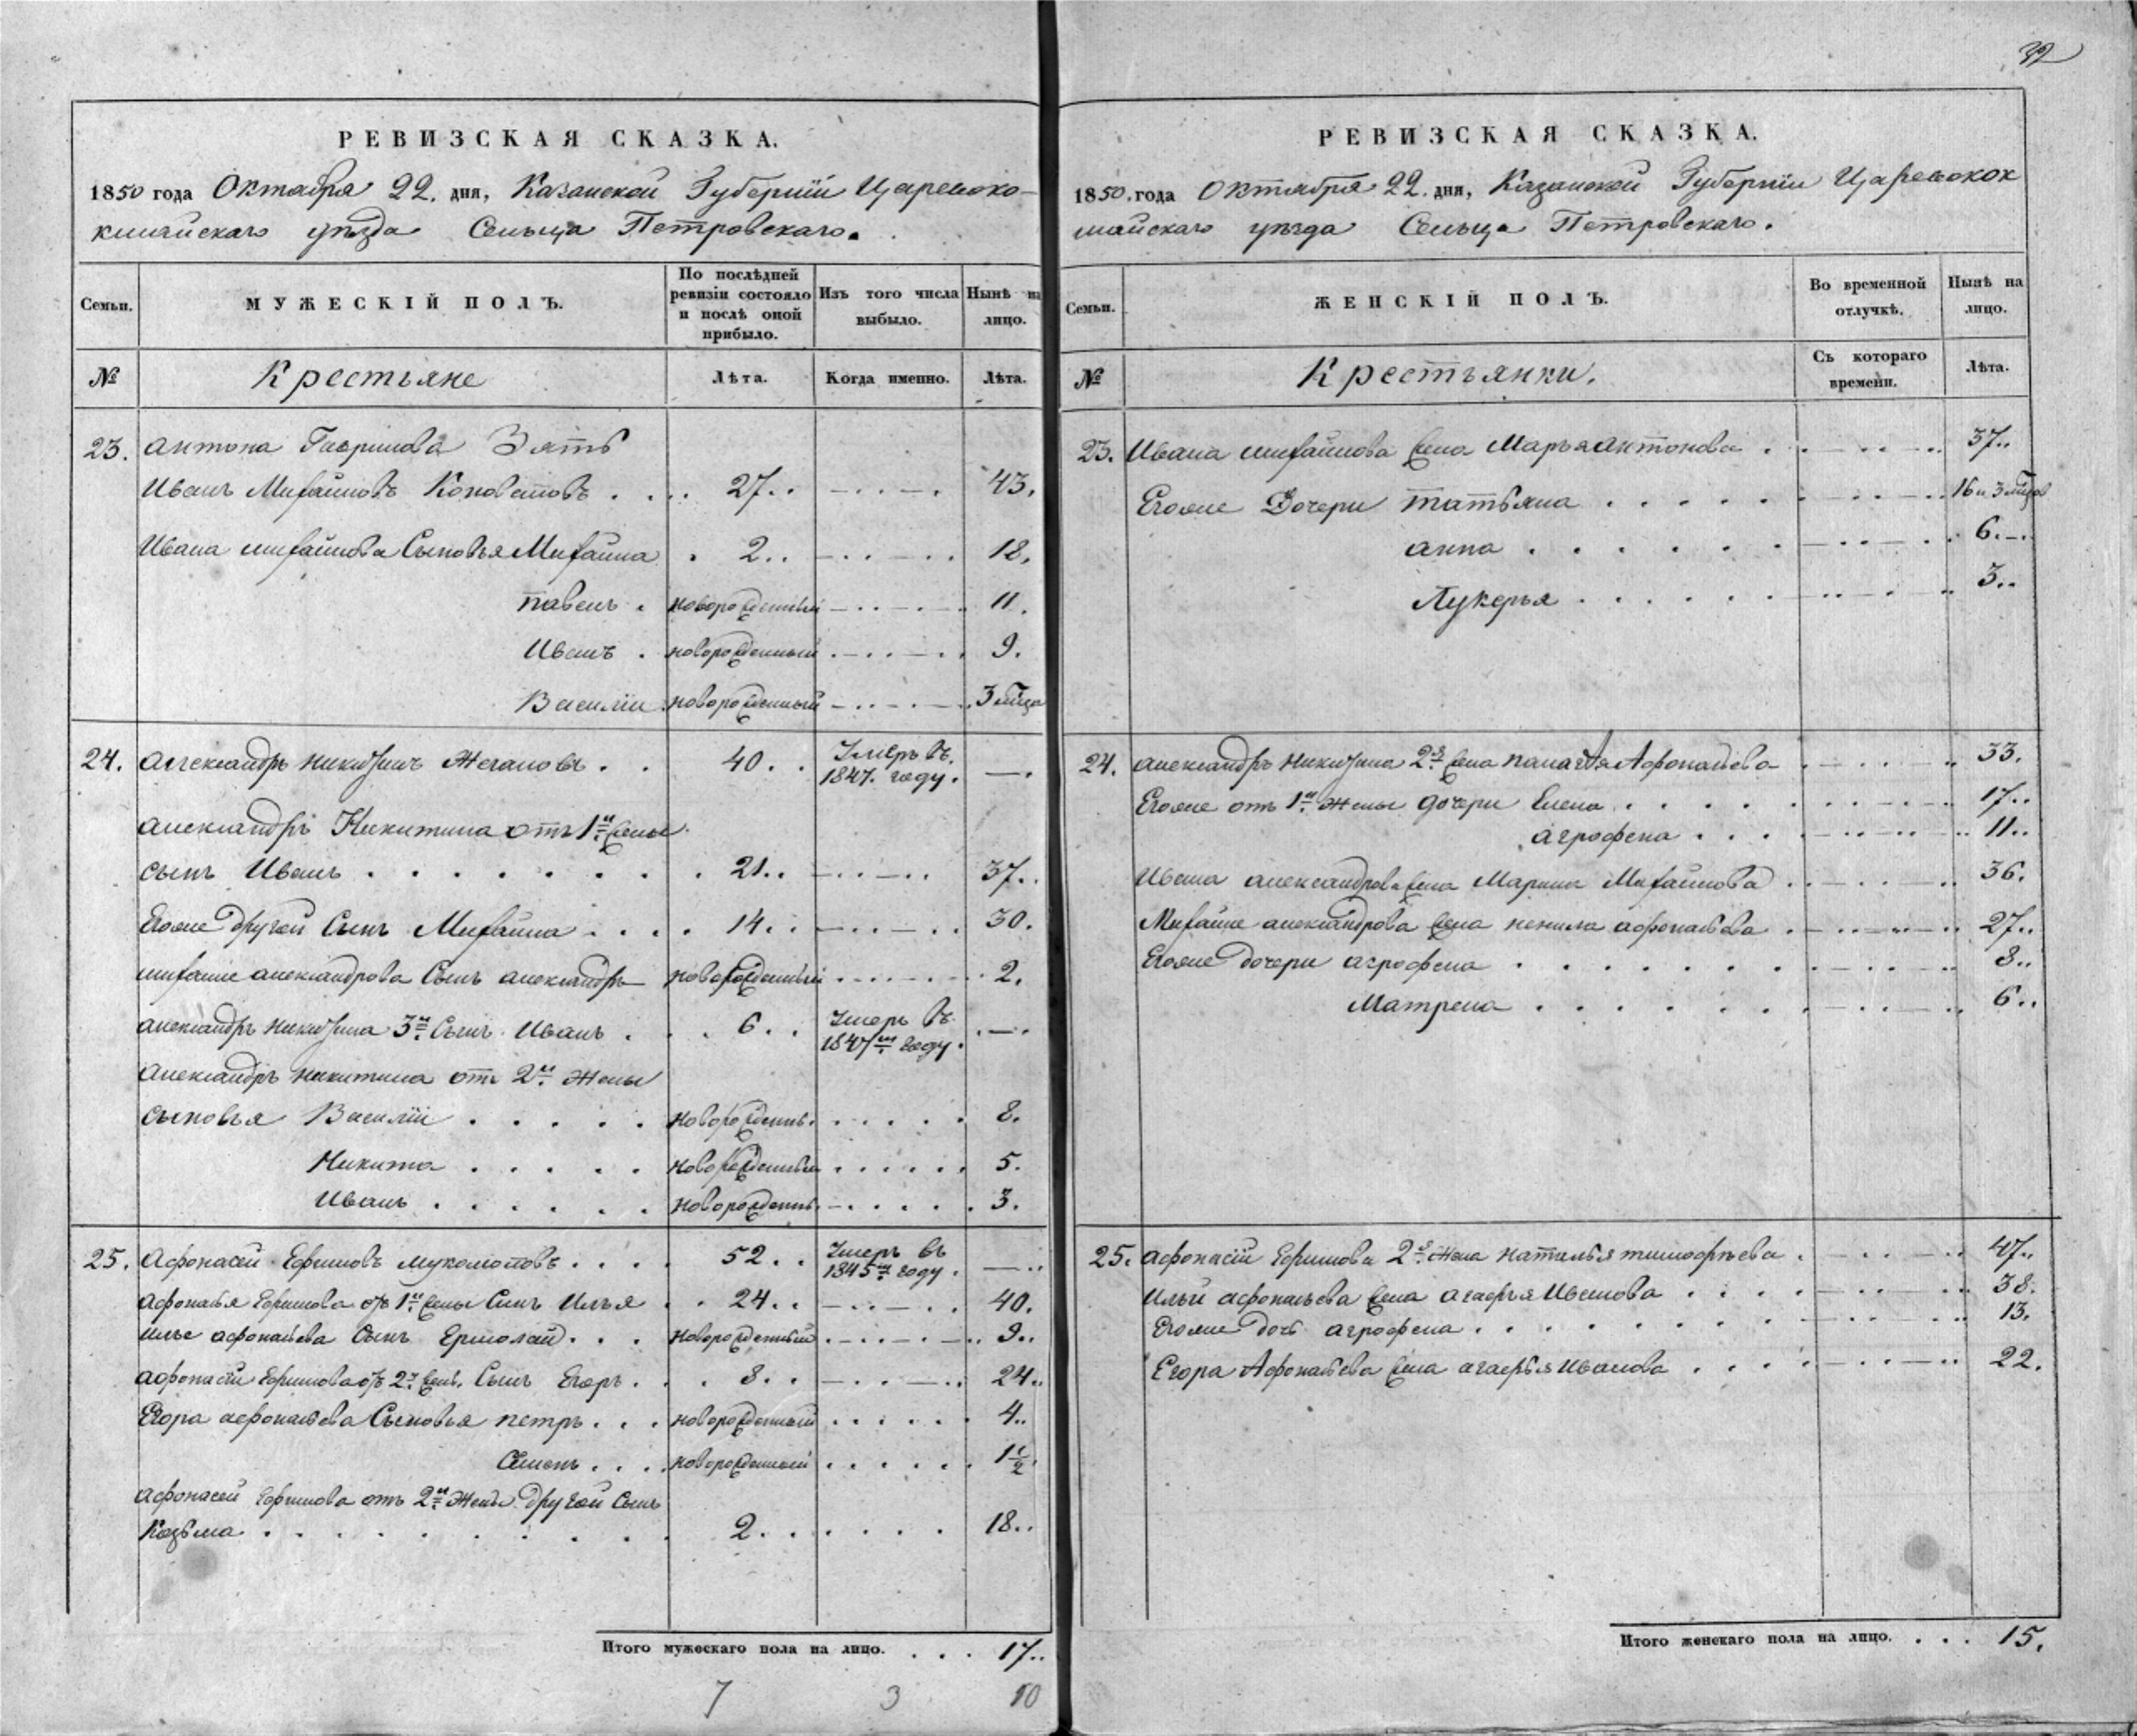 РЕВИЗСКАЯ СКАЗКА.
1850 года Октября 22. дня, Казанской Губерніи Царевоко-
кшайскаго уѣзда Сельца Петровскаго.
Семьи.
МУЖЕСКІЙ ПОЛЪ.
По послѣдней ревизіи состояло и послѣ оной прибыло.
Изъ того числа выбыло.
Нынѣ на лицо.
№
Крестьяне
Лѣта.
Когда именно.
Лѣта.
23. Антона Гаврилова Зять
Иванъ Михайловъ Коноваловъ 27 43.
Ивана Михайлова Сыновья Михайла 2 18.
Павелъ новорожденный 11.
Иванъ новорожденный 9.
Василіи новорожденный 3 мѣца
24. Александръ Никитинъ Жегаловъ 40 Умеръ въ 1847. году. —
Александръ Никитина отъ 1й жены
сынъ Иванъ 21 37
Егоже другой Сынъ Михайла 14 30.
Михайле Александрова Сынъ Александръ новорожденный 2.
Александръ Никитина 3й Сынъ Иванъ 6 Умеръ въ 1847м году. —
Александръ Никитина отъ 2й Жены
сыновья Василіи новорожденны. 8.
Никита новорожденный 5.
Иванъ новорожденны. 3.
25. Афонасей Ефимовъ Мукомоловъ 52 Умеръ въ 1845м году. —
Афонасья Ефимова отъ 1й жены Сынъ Илья 24 40.
Илье Афонасьева Сынъ Ермолай новорожденный 9
Афонасіи Ефимова отъ 2й жены. Сынъ Егоръ 8 24
Егора Афонасьева Сыновья Петръ новорожденный 4
Семенъ новорожденный 1 1/2
Афонасей Ефимова отъ 2й Жены другой Сынъ
Козьма 2 18
Итого мужескаго пола на лицо. 17
7 3 10
32
РЕВИЗСКАЯ СКАЗКА.
1850. года Октября 22. дня, Казанской Губерніи Царевокок
шайскаго уѣзда Сельца Петровскаго.
Семьи.
ЖЕНСКІЙ ПОЛЪ.
Во временной отлучкѣ.
Нынѣ на лицо.
№
Крестьянки.
Съ котораго времени.
Лѣта.
23. Ивана Михайлова жена Марья Антонова 37
Егоже Дочери Татьяна 16 и 3 мѣцов
Анна 6
Лукерья 3
24. Александръ Никитина 2я жена Палагѣя Афонасьева 33.
Егоже отъ 1й Жены дочери Елена 17
Агрофена 11
Ивана Александрова жена Марина Михайлова 36.
Михайле Александрова жена Ненила Афонасьева 27
Егоже дочери Агрофена 8
Матрена 6
25. Афонасіи Ефимова 2я Жена Наталья Тимофѣева 47
Ильи Афонасьева жена Агафья Иванова 38.
Егоже дочь Агрофена 13.
Егора Афонасьева жена Агафья Иванова 22.
Итого женскаго пола на лицо. 15.